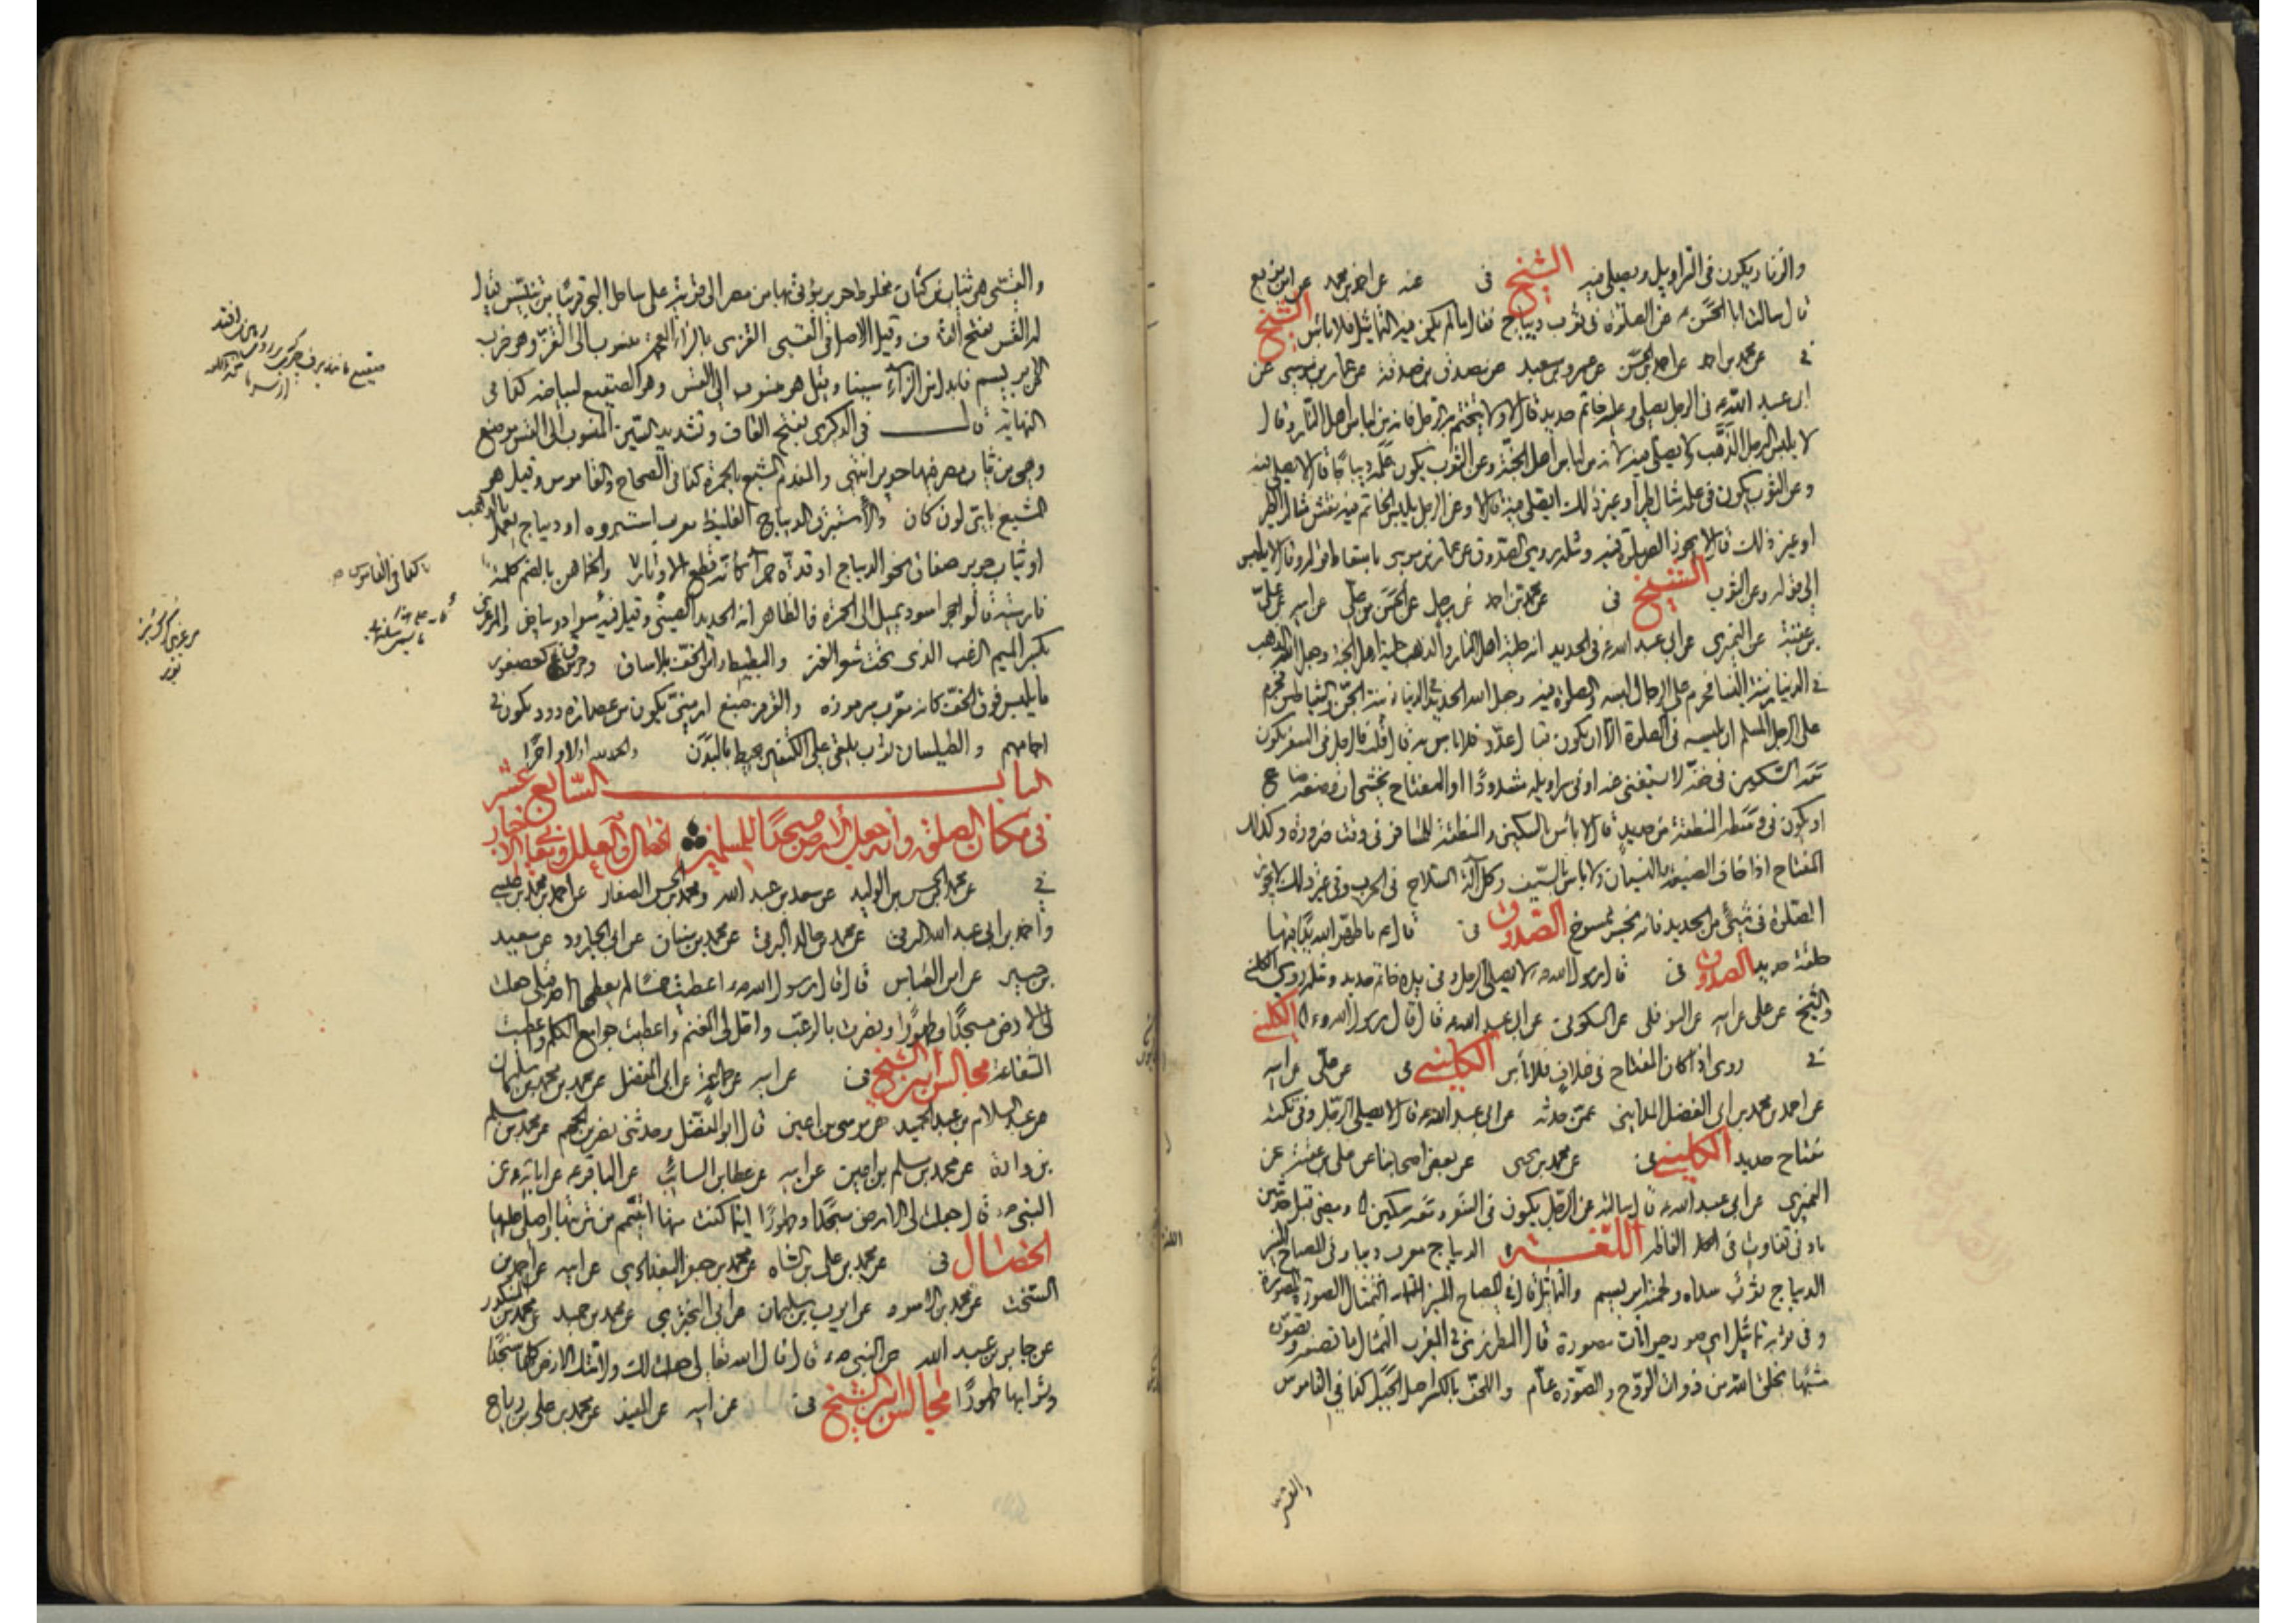 والزنار يكون في السراويل ويصلي فيه الشيخ في عنه عن احمد بن محمد عن ابن بزيع
قال سالت ابا الحسن ع عن الصلوة في ثوب ديباج فقال ما لم يكن فيه التماثيل فلا باس الشيخ
في عن محمد بن احمد عن احمد بن الحسن عن عمرو بن سعيد عن مصدق بن صدقة عن عمار بن موسى عن
ابي عبد الله ع في الرجل يصلي وعليه خاتم حديد قال لا ولا يتختم به الرجل فانه من لباس اهل النار وقال
لا يلبس الرجل الذهب ولا يصلي فيه لانه من لباس اهل الجنة وعن الثوب يكون علمه ديباجا قال لا يصلي فيه
وعن الثوب يكون في علمه مثال الطير او غير ذلك ايصلي فيه قال لا وعن الرجل يلبس الخاتم فيه نقش مثال الطير
او غير ذلك قال لا يجوز الصلوة فيه ومثله روى الصدوق عن عمار بن موسى باسقاط قوله وقال لا يلبس
الى قوله وعن الثوب الشيخ في عن محمد بن احمد عن رجل عن الحسن بن علي عن ابيه عن علي
بن عقبة عن النميري عن ابي عبد الله ع في الحديد انه حلية اهل النار والذهب حلية اهل الجنة وجعل الله الذهب
في الدنيا زينة النساء فحرم على الرجال لبسه والصلوة فيه وجعل الله الحديد في الدنيا زينة الجن والشياطين فحرم
على الرجل المسلم ان يلبسه في الصلوة الا ان يكون قبال عدو فلا باس به قال قلت فالرجل في السفر يكون
معه السكين في خفه لا يستغني عنه او في سراويله مشدودا او المفتاح يخشى ان وضعه ضاع
او يكون في وسطه المنطقة من حديد قال لا باس بالسكين والمنطقة للمسافر في وقت ضرورة وكذلك
المفتاح اذا خاف الضيعة والنسيان ولا باس بالسيف وكل آلة السلاح في الحرب وفي غير ذلك لا يجوز
الصلوة في شيء من الحديد فانه نجس ممسوخ الصدوق في قال ع ما طهر الله يدا فيها
حلقة حديد الصدوق في قال رسول الله ص لا يصلي الرجل وفي يده خاتم حديد ومثله روى الكليني
والشيخ عن علي عن ابيه عن النوفلي عن السكوني عن ابي عبد الله ع قال قال رسول الله ص الكليني
في روى اذا كان المفتاح في غلاف فلا باس الكليني في عن علي عن ابيه
عن احمد بن محمد بن ابي الفضل المدايني عمن حدثه عن ابي عبد الله ع قال لا يصلي الرجل وفي تكته
مفتاح حديد الكليني في عن محمد بن يحيى عن بعض اصحابنا عن علي بن عقبة عن
النميري عن ابي عبد الله ع قال سالته عن الرجل يكون في السفر ومعه سكين ومضى قبل حديثين
بادنى تفاوت في الفاظه اللغة الديباج معرب ديبا وفي المصباح المنير
الديباج ثوب سداه ولحمته ابريسم والتماثيل قال في المصباح المنير التمثال الصورة المصورة
وفي ثوبه تماثيل اي صور حيوانات مصورة قال المطرزي في المغرب التمثال ما تصنعه وتصوره
مشبها بخلق الله من ذوات الروح والصورة عام واللحف بالكسر اصل الجبل كذا في القاموس
والقسي
والقسي هي ثياب من كتان مخلوط بحرير يؤتى بها من مصر الى قرية على ساحل البحر قريبا من تنيس يقال
لها القس بفتح القاف وقيل الاصل في القسي القزي بالزاء المعجمة منسوب الى القز وهو ضرب
من الابريسم فابدل من الزاء سينا وقيل هو منسوب الى القس وهو الصقيع لبياضه كذا في
النهاية قال في الذكرى بفتح القاف وتشديد السين المنسوب الى القس موضع
وهي من ثياب مصر فيها حرير انتهى والمفدم المشبع بالحمرة كذا في الصحاح والقاموس وقيل هو
المشبع باي لون كان والاستبرق الديباج الغليظ معرب استبروه او ديباج يعمل بالذهب
او ثياب حرير صفاق نحو الديباج او قدة حمراء كانها قطع الاوتار والخماهن بالضم كلمة
فارسية قالوا حجر اسود يميل الى الحمرة فالظاهر انه الحديد الصيني وقيل فيه سواد وبياض والمرعزى
بكسر الميم الزغب الذي تحت شعر العنز والبطيط راس الخف بلا ساق وجرموق كعصفور
ما يلبس فوق الخف كانه معرب سرموزه والقرمز صبغ ارمني يكون من عصارة دود تكون في
اجامهم والطيلسان ثوب يلقى على الكتفين يحيط بالبدن والحمد لله اولا واخرا
الباب السابع عشر
في مكان الصلوة وانه جعل الارض مسجدا للمسلمين الخصال والعلل ومعاني الاخبار
في عن محمد بن الحسن بن الوليد عن سعد بن عبد الله ومحمد بن الحسن الصفار عن احمد بن محمد بن عيسى
واحمد بن ابي عبد الله البرقي عن محمد بن خالد البرقي عن محمد بن سنان عن ابي الجارود عن سعيد
بن جبير عن ابن العباس قال قال رسول الله ص اعطيت خمسا لم يعطها احد قبلي جعلت
لي الارض مسجدا وطهورا ونصرت بالرعب واحل لي المغنم واعطيت جوامع الكلم واعطيت
الشفاعة مجالس ابن الشيخ في عن ابيه عن جماعة عن ابي المفضل عن محمد بن محمد بن سليمان
عن عبد السلام بن عبد الحميد عن موسى بن اعين قال ابو المفضل وحدثني نصر بن الجهم عن محمد بن مسلم
بن وارة عن محمد بن مسلم بن اعين عن ابيه عن عطا بن السائب عن الباقر ع عن ابائه ع عن
النبي ص قال جعلت لي الارض مسجدا وطهورا اينما كنت منها اتيمم من تربتها واصلي عليها
الخصال في عن محمد بن علي بن الشاه عن محمد بن جعفر البغدادي عن ابيه عن احمد بن
السخت عن محمد بن الاسود عن ايوب بن سليمان عن ابي البختري عن محمد بن حميد عن محمد بن المنكدر
عن جابر بن عبد الله عن النبي ص قال قال الله تعالى جعلت لك ولامتك الارض كلها مسجدا
وترابها طهورا مجالس ابن الشيخ في عن ابيه عن المفيد عن محمد بن علي بن رياح
كذا في القاموس